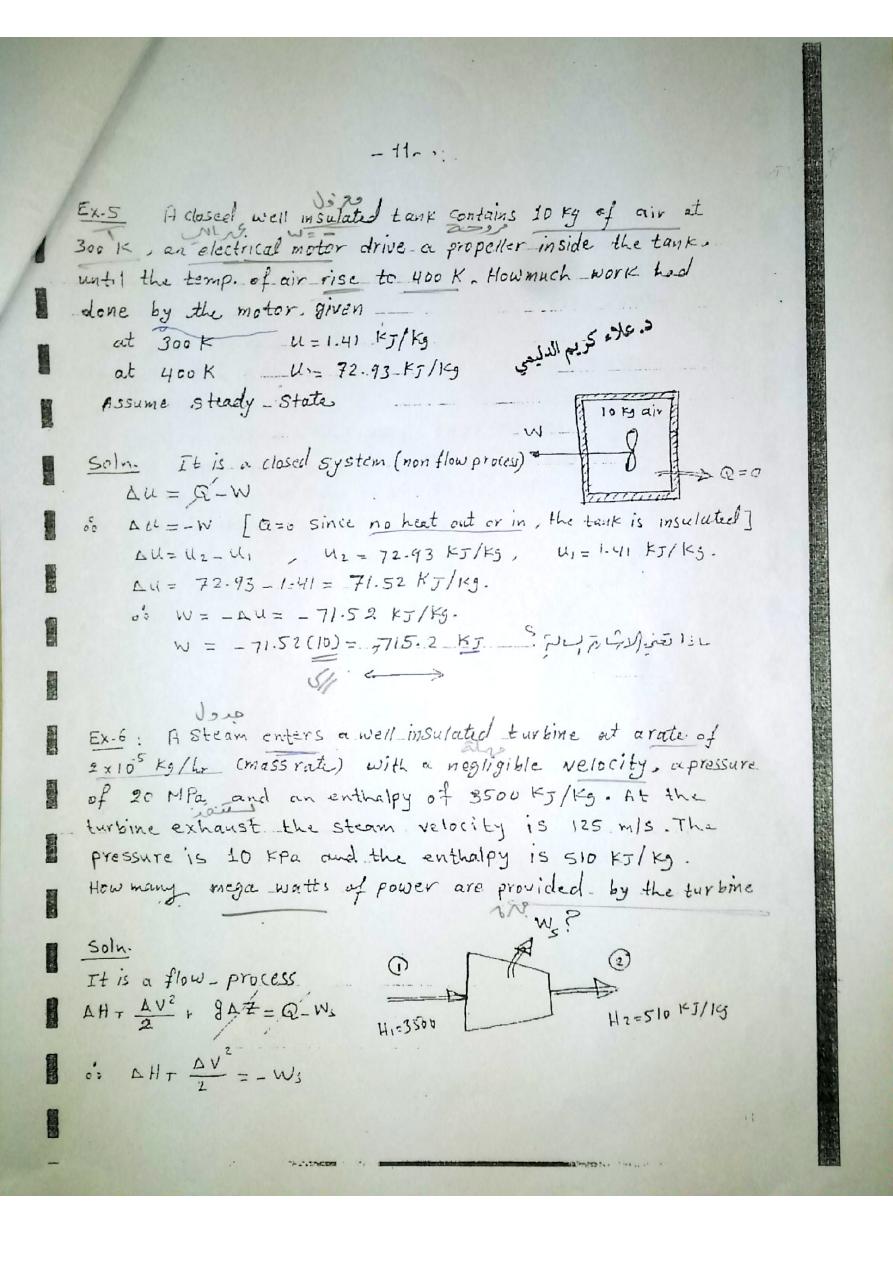 - 11 -
Ex-5 A closed well insulated tank contains 10 kg of air at
300 K, an electrical motor drive a propeller inside the tank.
until the temp. of air rise to 400 K. How much work had
done by the motor. given
at 300 K U = 1.41 KJ/Kg
at 400 K U = 72.93 KJ/Kg
د. علاء كريم الدليمي
Assume steady-state
10 kg air
W
Q = 0
Soln. It is a closed system (non flow process)
Δu = Q - W
∴ Δu = -W [Q=0 since no heat out or in, the tank is insulated]
Δu = u2 - u1 , u2 = 72.93 KJ/Kg, u1 = 1.41 KJ/Kg.
Δu = 72.93 - 1.41 = 71.52 KJ/Kg.
∴ W = -Δu = -71.52 KJ/Kg.
W = -71.52 (10) = -715.2 KJ ماذا تعني الاشارة السالبة ؟
جدول
Ex-6: A Steam enters a well insulated turbine at a rate of
2x10^5 Kg/hr (mass rate) with a negligible velocity, a pressure
of 20 MPa and an enthalpy of 3500 KJ/Kg. At the
turbine exhaust the steam velocity is 125 m/s. The
pressure is 10 KPa and the enthalpy is 510 KJ/Kg.
How many mega watts of power are provided by the turbine
Ws?
Soln.
It is a flow-process
ΔH + ΔV²/2 + gΔZ = Q - Ws
① ②
H1=3500
H2=510 KJ/Kg
∴ ΔH + ΔV²/2 = - Ws